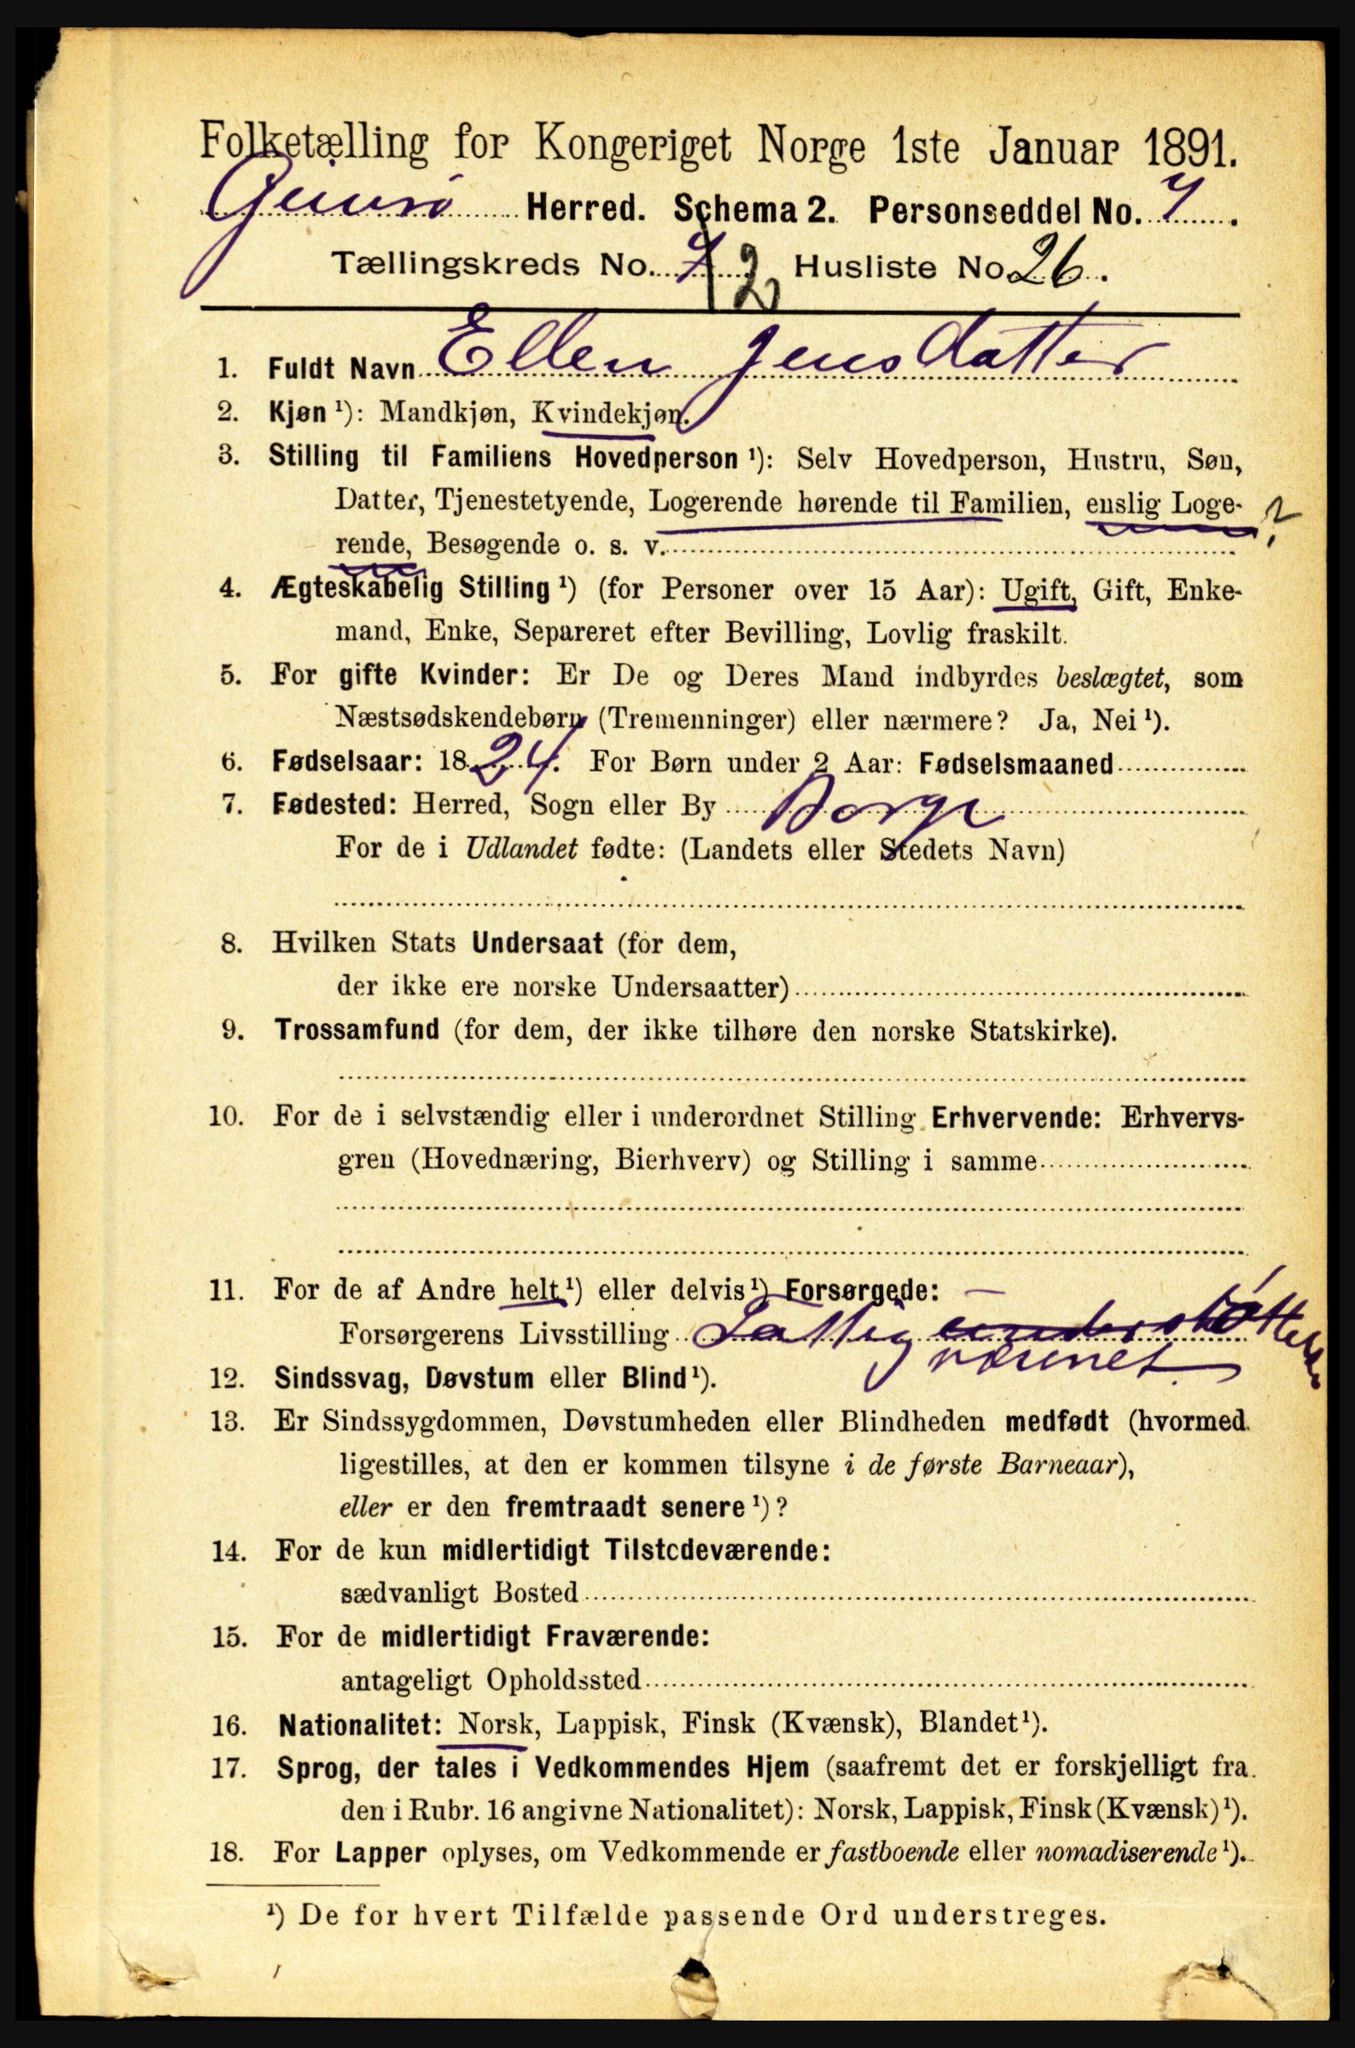 Folketælling for Kongeriget Norge 1ste Januar 1891.
Gimsø Herred. Schema 2. Personseddel No. 7.
Tællingskreds No. 2 Husliste No. 26.
1. Fuldt Navn Ellen Jensdatter
2. Kjøn ¹): Mandkjøn, Kvindekjøn.
3. Stilling til Familiens Hovedperson ¹): Selv Hovedperson, Hustru, Søn,
Datter, Tjenestetyende, Logerende hørende til Familien, enslig Loge- ?
rende, Besøgende o. s. v.
4. Ægteskabelig Stilling ¹) (for Personer over 15 Aar): Ugift, Gift, Enke-
mand, Enke, Separeret efter Bevilling, Lovlig fraskilt.
5. For gifte Kvinder: Er De og Deres Mand indbyrdes beslægtet, som
Næstsødskendebørn (Tremenninger) eller nærmere? Ja, Nei ¹).
6. Fødselsaar: 1824. For Børn under 2 Aar: Fødselsmaaned
7. Fødested: Herred, Sogn eller By Borge
For de i Udlandet fødte: (Landets eller Stedets Navn)
8. Hvilken Stats Undersaat (for dem,
der ikke ere norske Undersaatter)
9. Trossamfund (for dem, der ikke tilhøre den norske Statskirke).
10. For de i selvstændig eller i underordnet Stilling Erhvervende: Erhvervs-
gren (Hovednæring, Bierhverv) og Stilling i samme
11. For de af Andre helt ¹) eller delvis ¹) Forsørgede:
Forsørgerens Livsstilling Fattigunderstøttelse
væsenet
12. Sindssvag, Døvstum eller Blind ¹).
13. Er Sindssygdommen, Døvstumheden eller Blindheden medfødt (hvormed
ligestilles, at den er kommen tilsyne i de første Barneaar),
eller er den fremtraadt senere ¹)?
14. For de kun midlertidigt Tilstedeværende:
sædvanligt Bosted
15. For de midlertidigt Fraværende:
antageligt Opholdssted
16. Nationalitet: Norsk, Lappisk, Finsk (Kvænsk), Blandet ¹).
17. Sprog, der tales i Vedkommendes Hjem (saafremt det er forskjelligt fra
den i Rubr. 16 angivne Nationalitet): Norsk, Lappisk, Finsk (Kvænsk) ¹).
18. For Lapper oplyses, om Vedkommende er fastboende eller nomadiserende ¹).
¹) De for hvert Tilfælde passende Ord understreges.